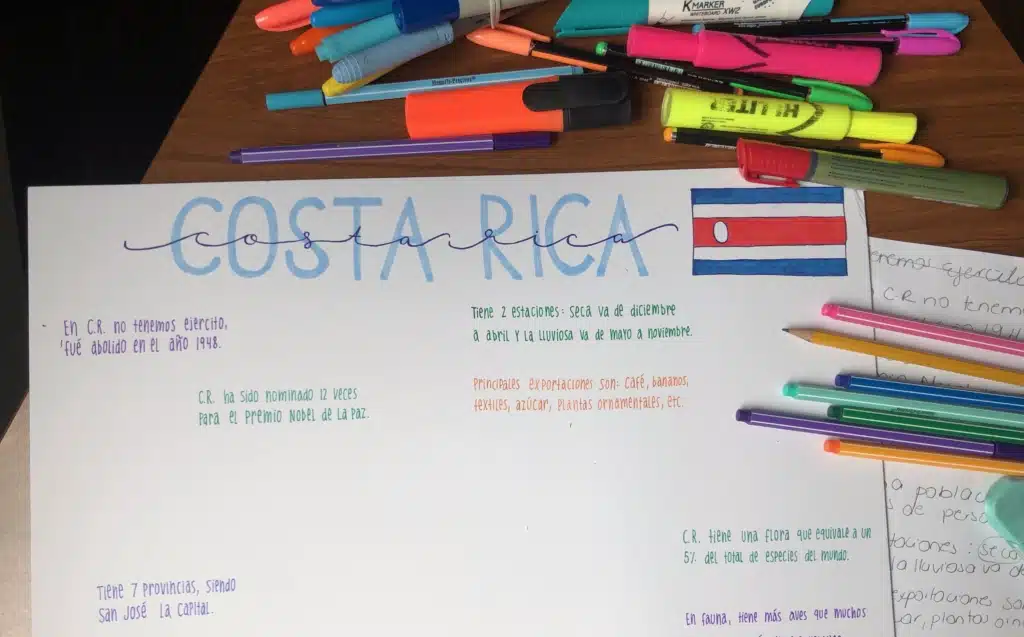 K MARKER
WHITEBOARD XWZ
HI-LITER
COSTA RICA
costa rica
En C.R. no tenemos ejercito,
fué abolido en el año 1948.
Tiene 2 estaciones: seca va de diciembre
a abril y la lluviosa va de mayo a noviembre.
C.R. ha sido nominado 12 veces
para el Premio Nobel de La Paz.
Principales exportaciones son: café, bananos,
textiles, azúcar, plantas ornamentales, etc.
C.R. tiene una flora que equivale a un
5% del total de especies del mundo.
Tiene 7 provincias, siendo
San José la capital.
En fauna, tiene más aves que muchos
enemos ejercito
C.R no tenem
a poblac
s de perso
taciones: seca
la lluviosa va de
exportaciones so
car, plantas